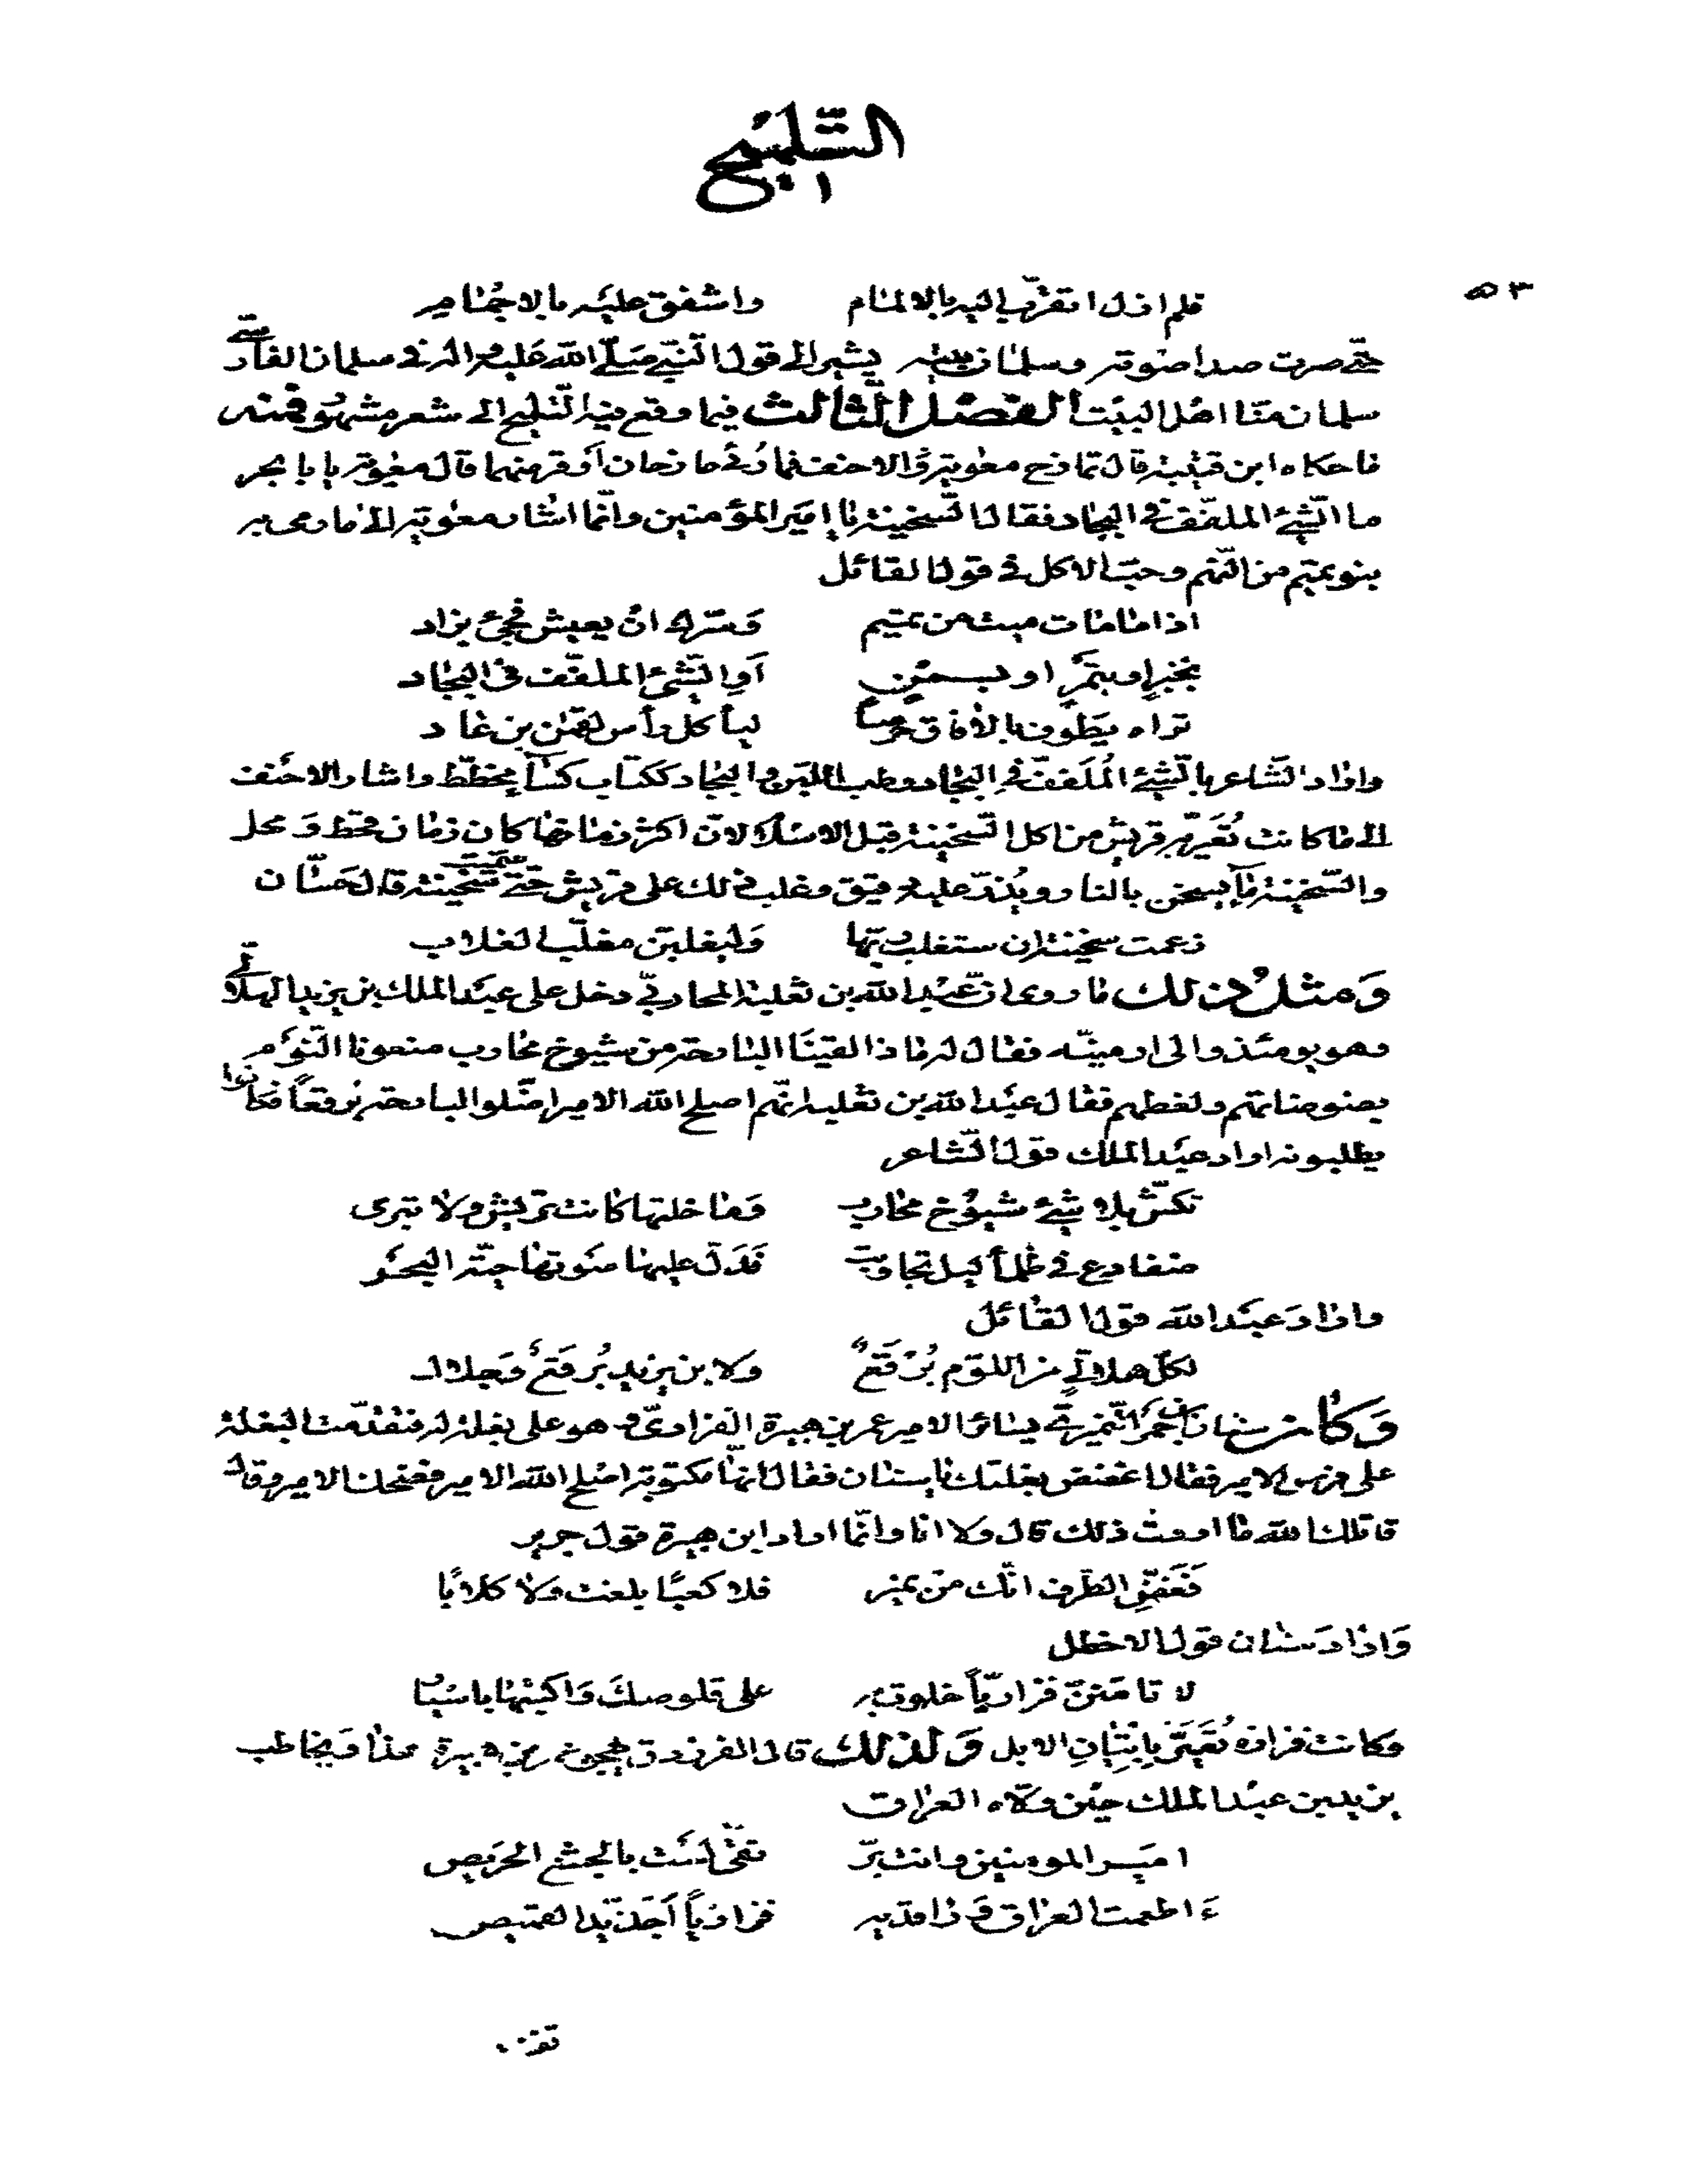 التلميح
فلم ازل اتقرب اليه بالالمام واشفق عليه بالاجمام
حتى صرت صدا صوته وسلمان بيته يشير الى قول النبى صلى الله عليه واله فى سلمان الفارسى
سلمان منا اهل البيت الفصل الثالث فيما وقع فيه التلميح الى شعر مشهور فمنه
ما حكاه ابن قتيبة قال تمازح معوية والاحنف فما رئى مازحان اوقر منهما قال معوية يا با بحر
ما الشئ الملفف فى البجاد فقال السخينة يا امير المؤمنين وانما اشار معوية الى ما رمى به
بنو تميم من النهم وحب الاكل فى قول القائل
اذا ما مات ميت من تميم وسرك ان يعيش فجئ بزاد
بخبز او بتمر او بسمن او الشئ الملفف فى البجاد
تراه يطوف بالافاق حرصا ليأكل رأس لقمن بن عاد
واراد الشاعر بالشئ الملفف فى البجاد وطب اللبن والبجاد ككتاب كساء مخطط واشار الاحنف
الى ما كانت تعير به قريش من اكل السخينة قبل الاسلام لان اكثر زمانها كان زمان قحط ومحل
والسخينة ماء يسخن بالنار ويذر عليه دقيق وغلب ذلك على قريش حتى سميت سخينة قال حسان
زعمت سخينة ان ستغلب ربها وليغلبن مغلب الغلاب
ومثل ذلك ما روى ان عبد الله بن ثعلبة المحاربى دخل على عبد الملك بن يزيد الهلالى
وهو يومئذ والى ارمينيه فقال له ماذا لقينا البارحة من شيوخ محارب منعونا النوم
بضوضائهم ولغطهم فقال عبد الله بن ثعلبة انهم اصلح الله الامير اضلوا البارحة برقعا فكانوا
يطلبونه اراد عبد الملك قول الشاعر
تكش بلا شئ شيوخ محارب وما خلتها كانت تريش ولا تبرى
ضفادع فى ظلماء ليل تجاوبت فدل عليها صوتها حية البحر
واراد عبد الله قول القائل
لكل هلالى من اللؤم برقع ولابن يزيد برقع وجلال
وكان سنان بن احمر النميرى يساير الامير عمر بن هبيرة الفزارى وهو على بغلة له فتقدمت البغلة
على فرس الامير فقال اغضض بغلتك يا سنان فقال انها مكتوبة اصلح الله الامير فضحك الامير وقال
قاتلك الله ما اردت ذلك قال ولا انا وانما اراد ابن هبيرة قول جرير
فغض الطرف انك من نمير فلا كعبا بلغت ولا كلابا
واراد سنان قول الاخطل
لا تامنن فزاريا خلوت به على قلوصك واكتبها باسيار
وكانت فزاره تعير باتيان الابل ولذلك قال الفرزدق يهجو عمر بن هبيرة هذا ويخاطب
يزيد بن عبد الملك حين ولاه العراق
امير المومنين وانت بر تقى لست بالجشع الحريص
ءاطعمت العراق ورافديه فزاريا احذ يد القميص